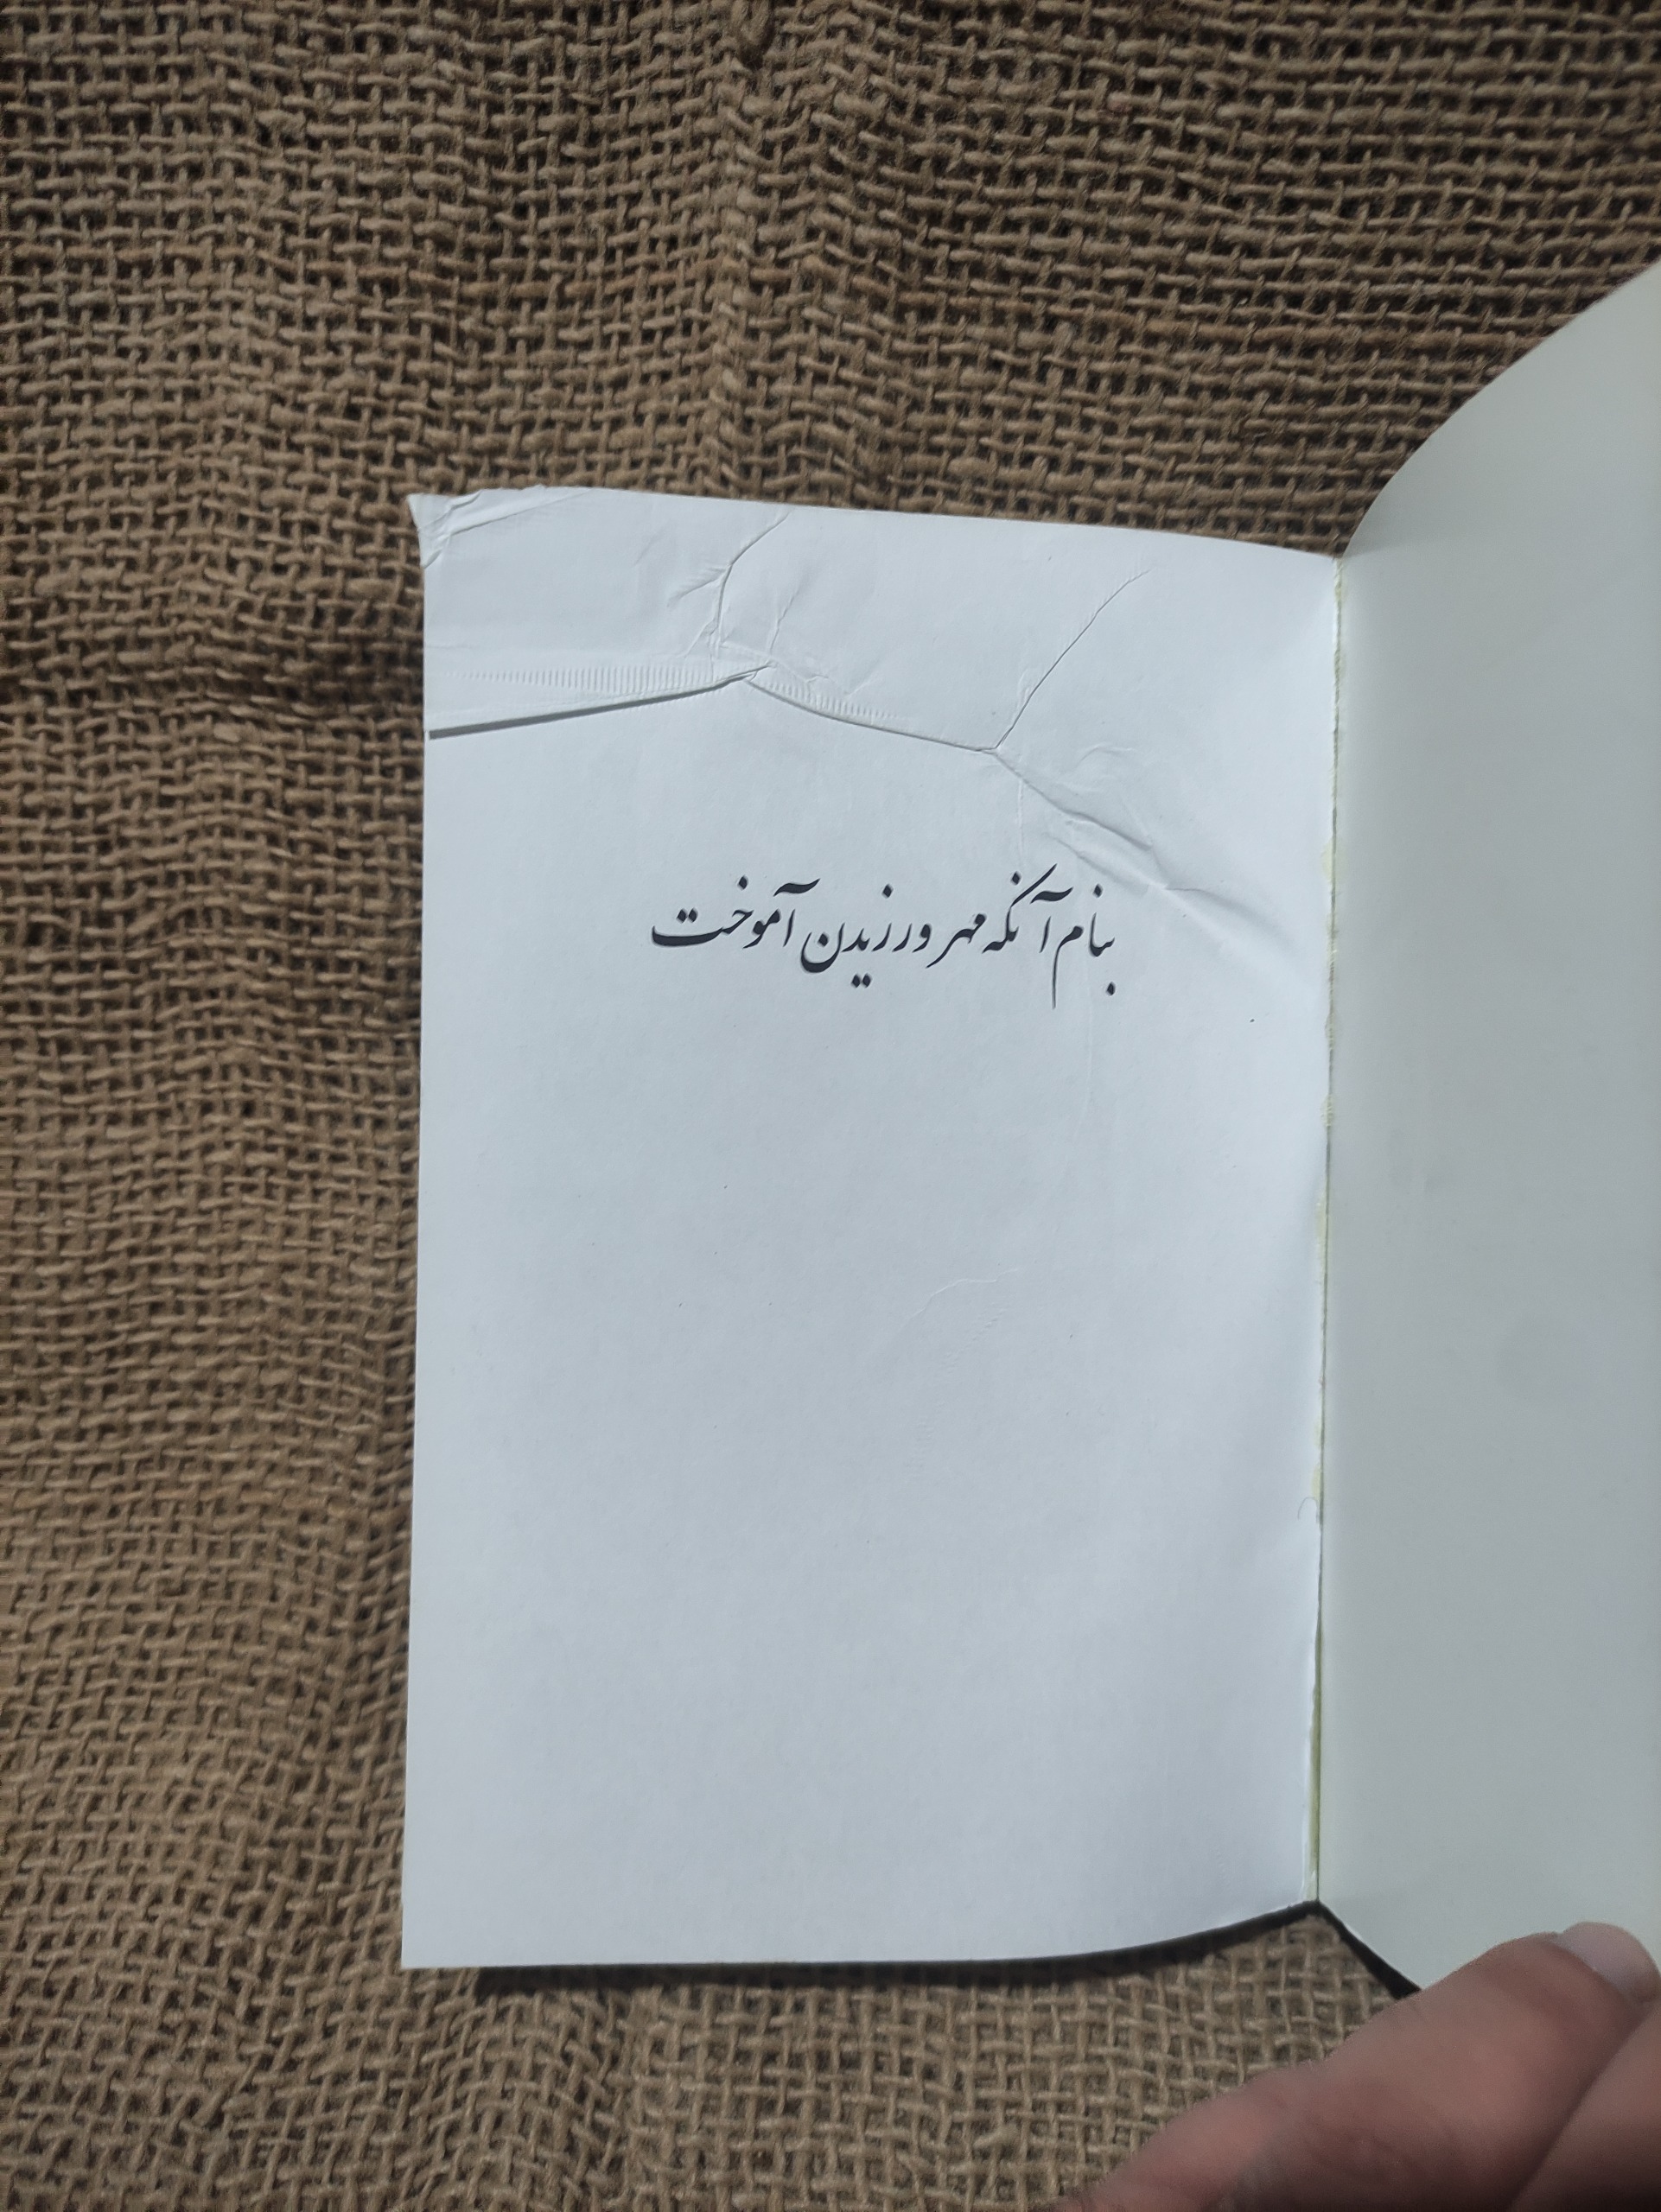 بنام آنکه مهر ورزیدن آموخت